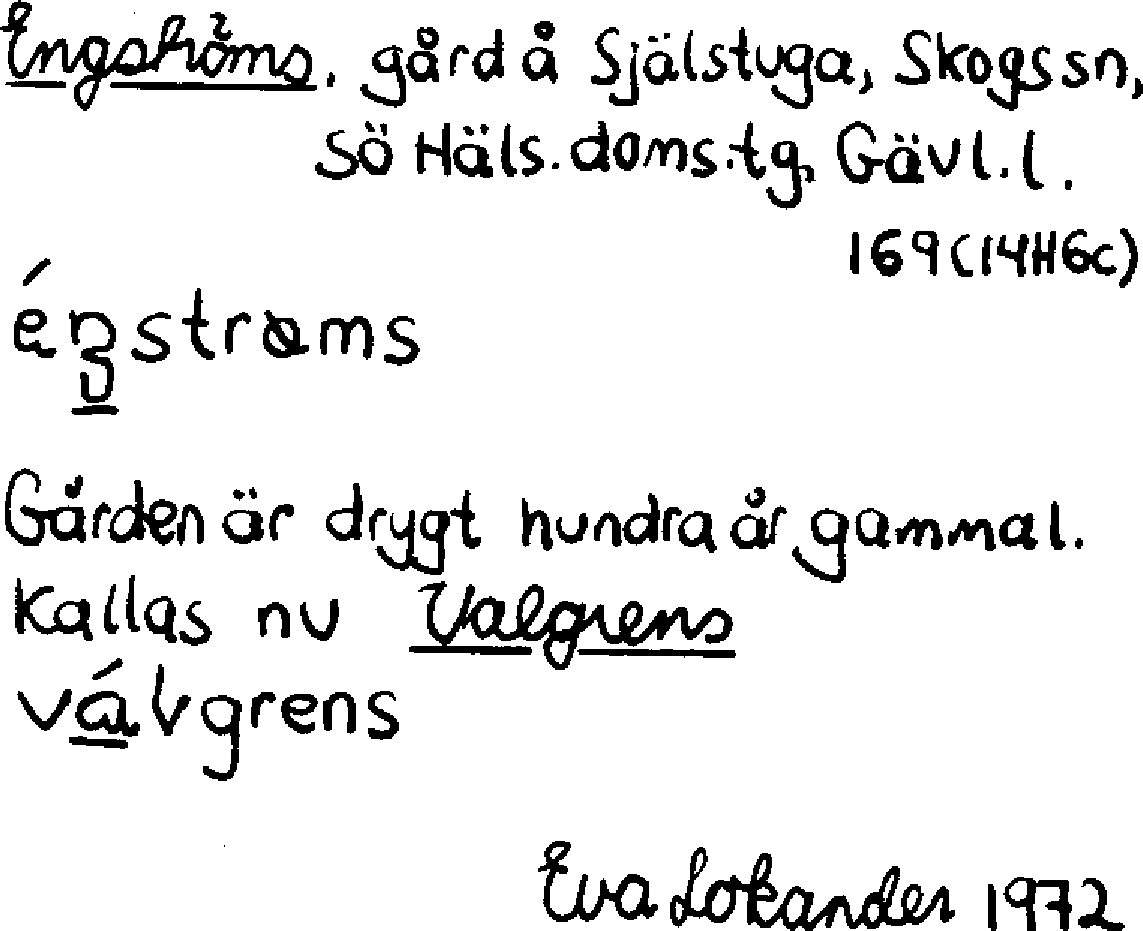 Engströms, gård å Själstuga, Skogs sn,
Sö Häls. doms. tg, Gävl. l.
169 (14H6c)
éŋstrɵms
Gården är drygt hundra år gammal.
Kallas nu Valgrens
válvgrens
Eva Lokander 1972